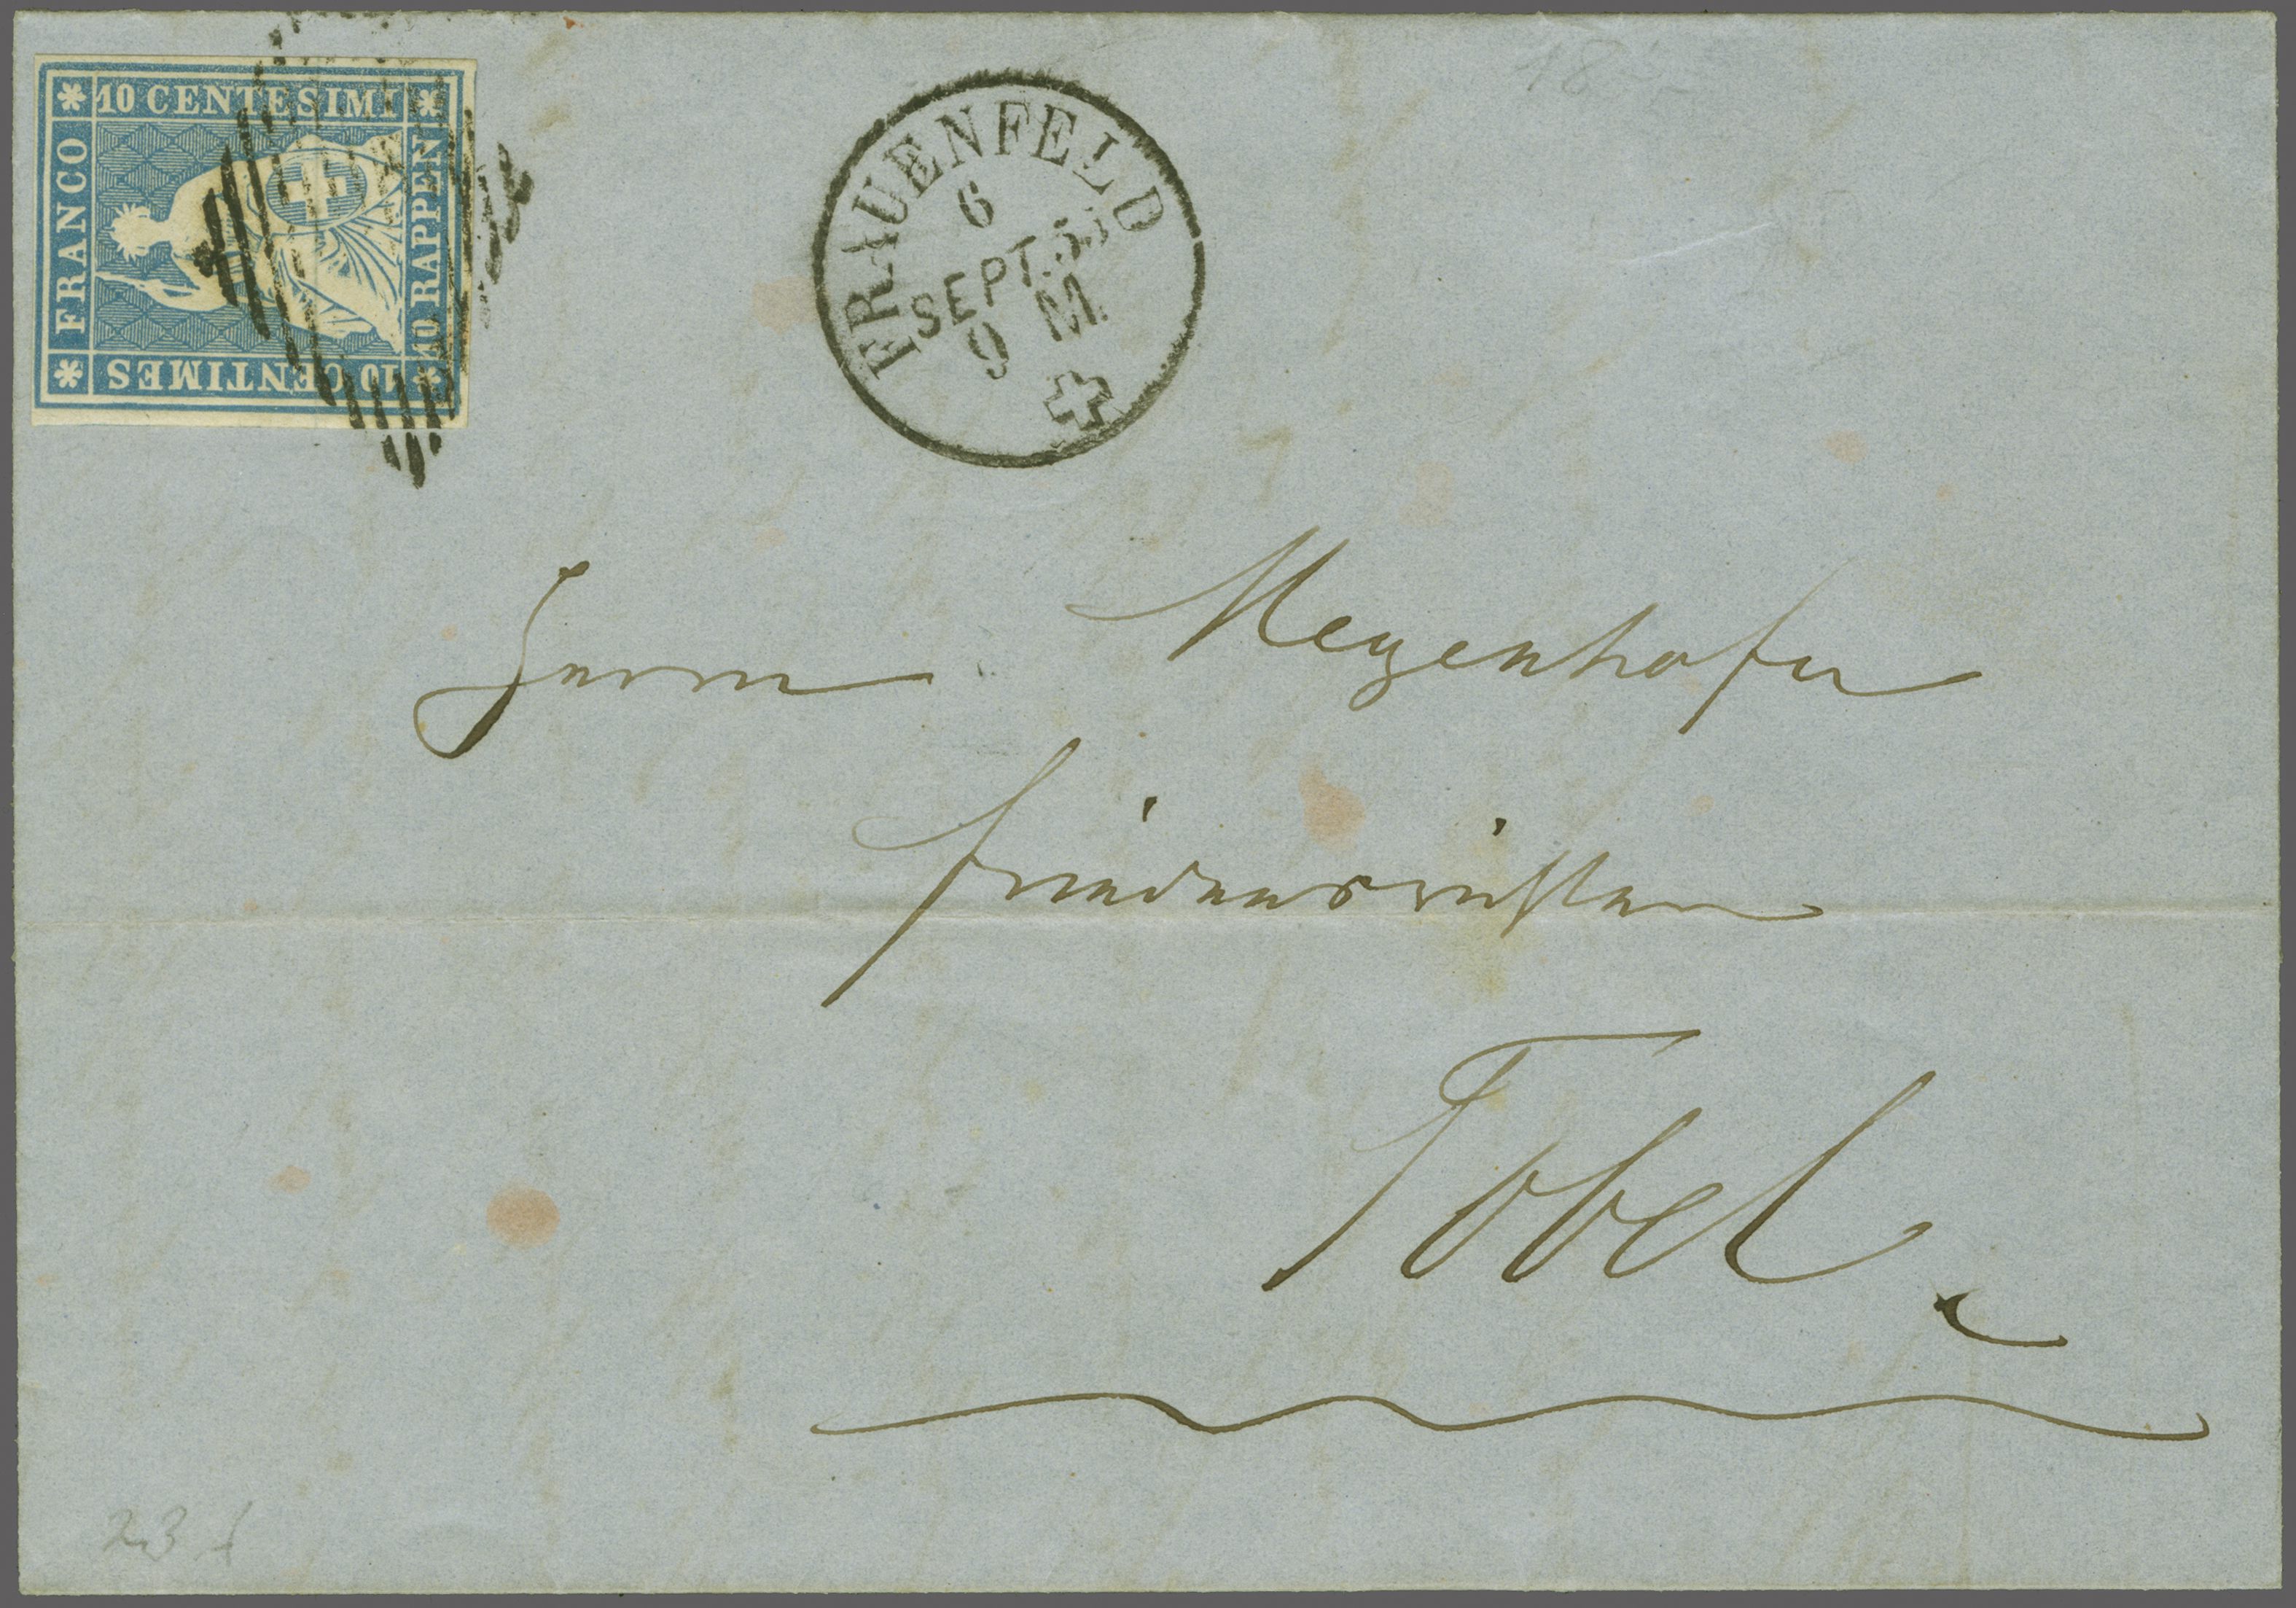 FRANCO
10 CENTESIMI
10 RAPPEN
10 CENTIMES
FRAUENFELD
6
SEPT. 55
9 M
Herrn Megenhofer
Friedensrichter
Tobel.
23 f